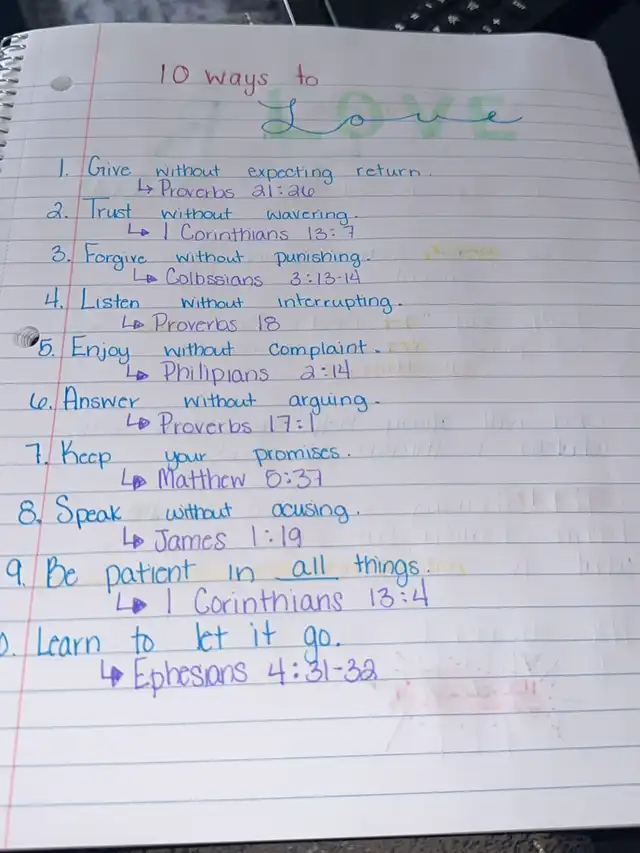 10 ways to
Love
LOVE
1. Give without expecting return.
↳ Proverbs 21:26
2. Trust without wavering.
↳ 1 Corinthians 13:7
3. Forgive without punishing.
↳ Colossians 3:13-14
4. Listen without interrupting.
↳ Proverbs 18
5. Enjoy without complaint.
↳ Philipians 2:14
6. Answer without arguing.
↳ Proverbs 17:1
7. Keep your promises.
↳ Matthew 5:37
8. Speak without acusing.
↳ James 1:19
9. Be patient in all things.
↳ 1 Corinthians 13:4
0. Learn to let it go.
↳ Ephesians 4:31-32